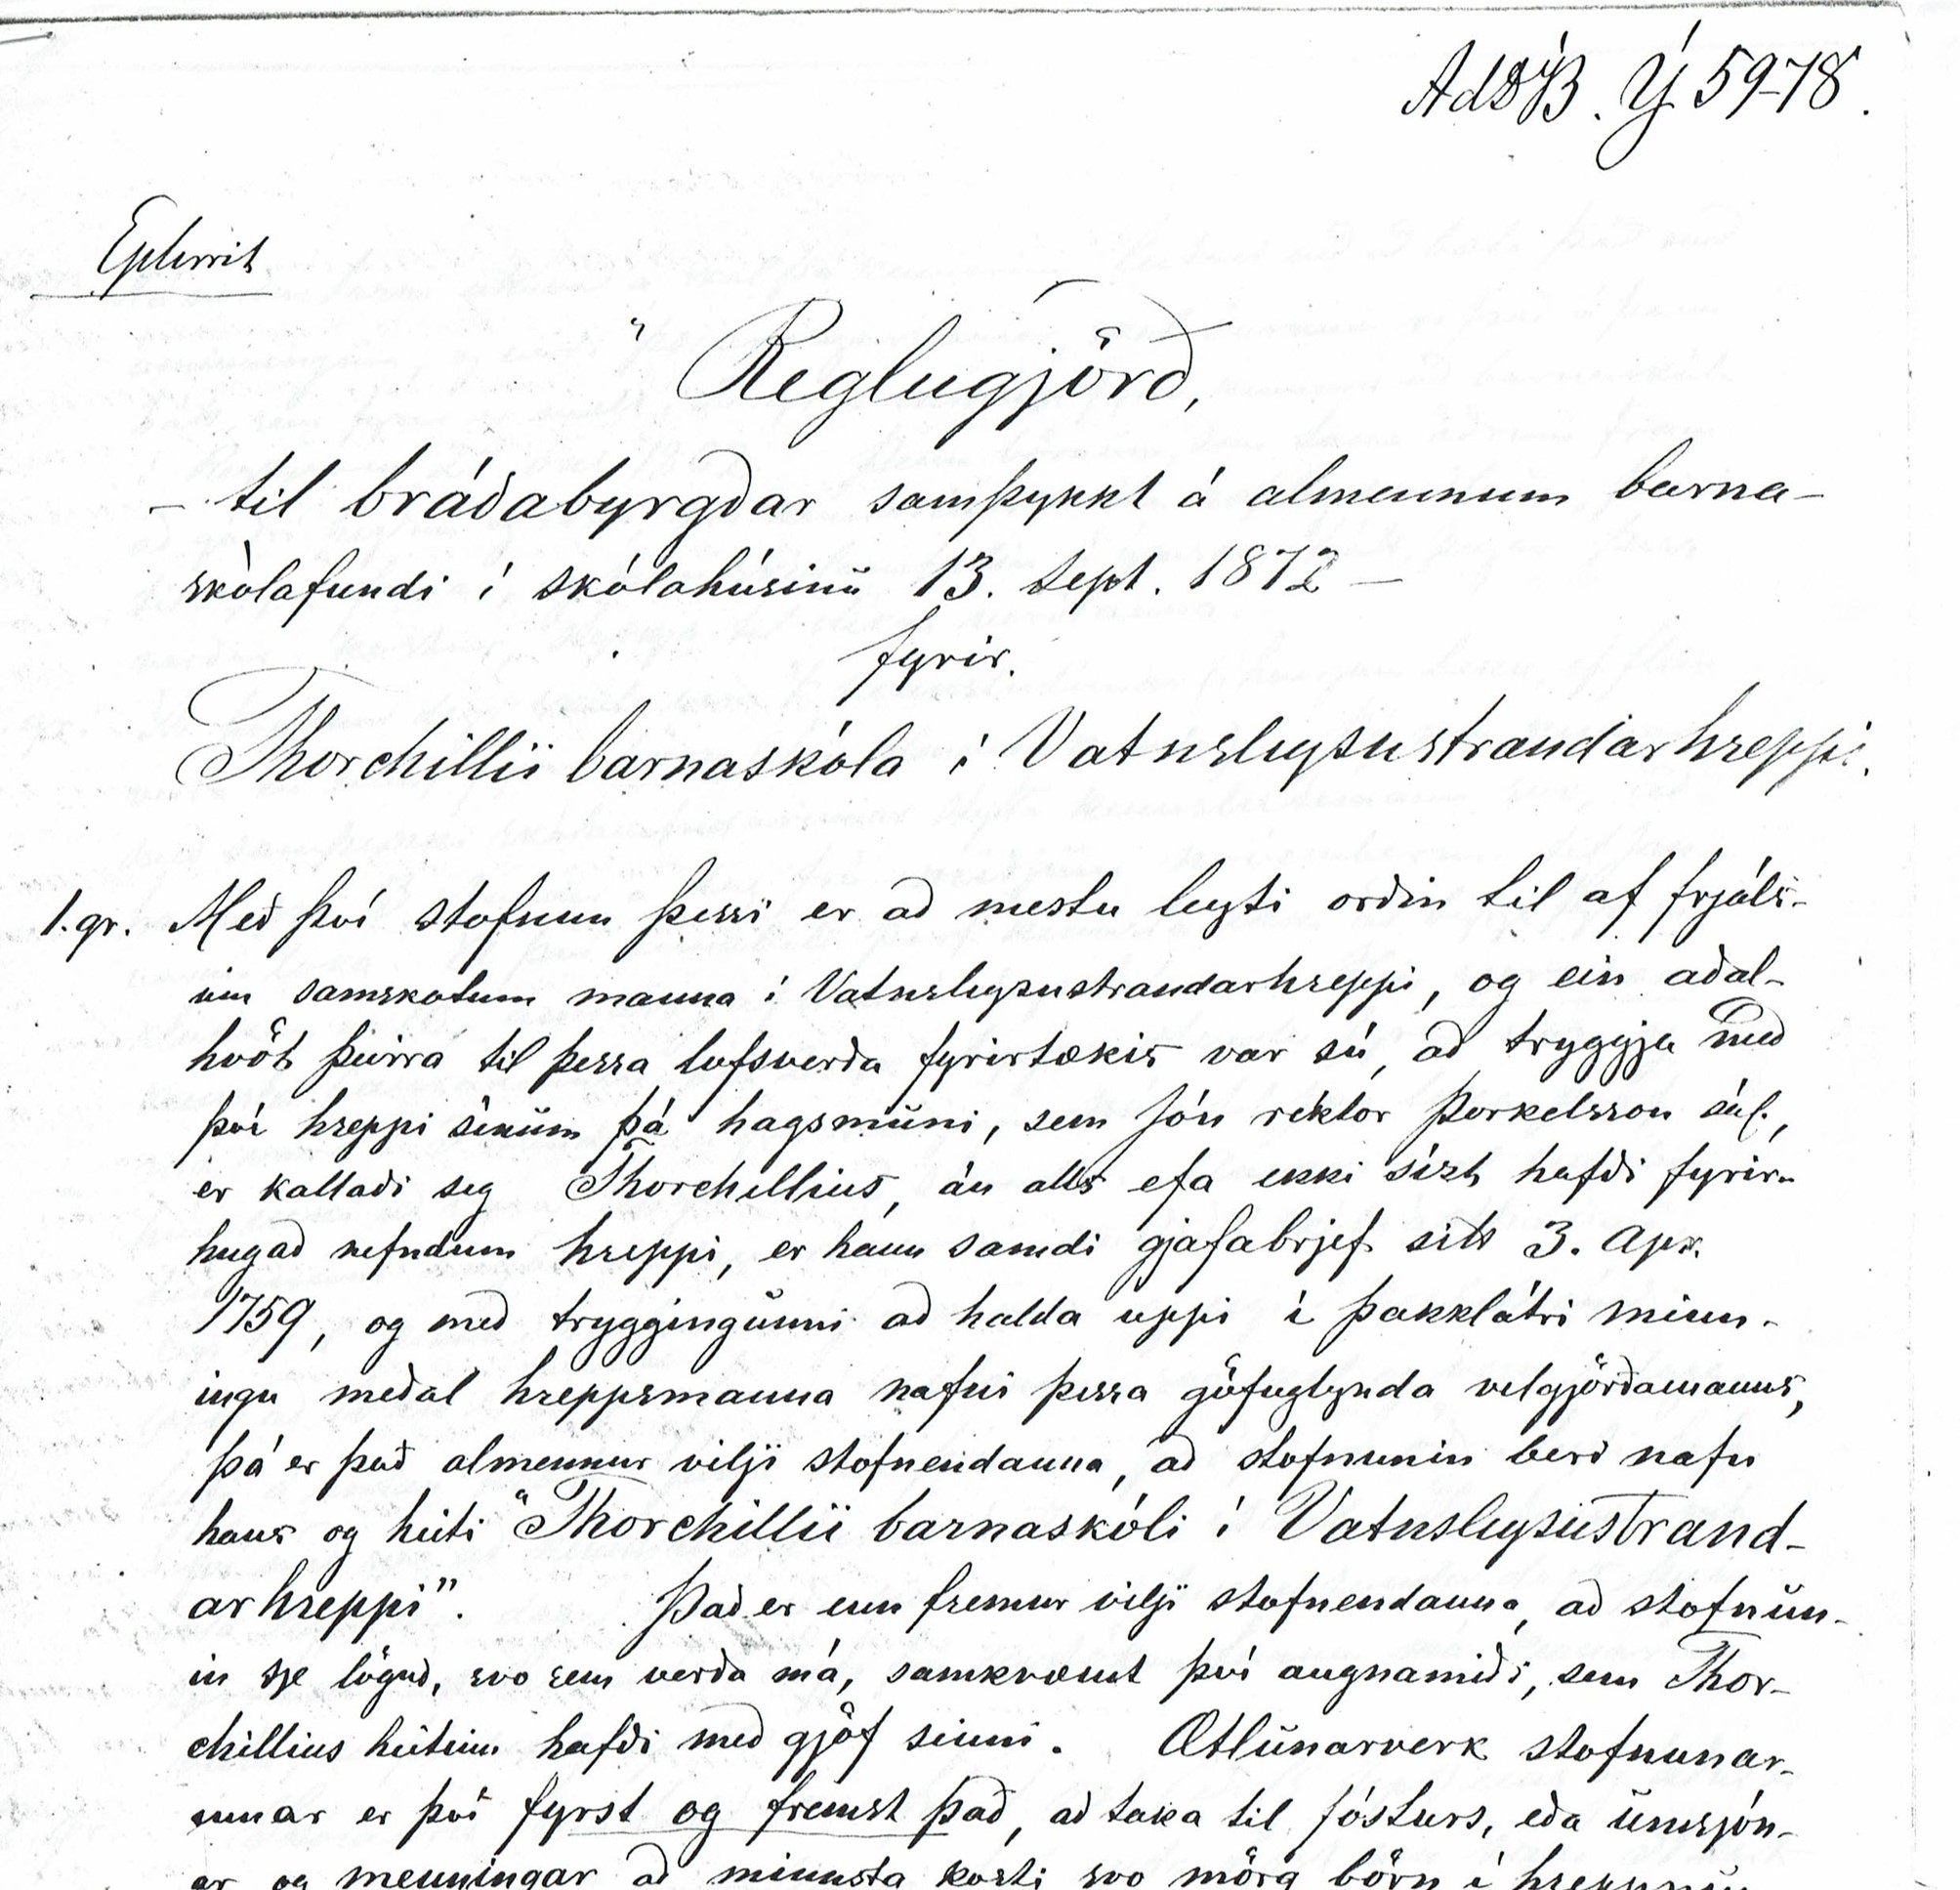 Y 59-78.
Eptirrit
"Reglugjörð,
– til bráðabyrgðar samþykkt á almennum barna–
skólafundi í skólahúsinu 13. sept. 1872 –
fyrir.
Thorchillii barnaskóla í Vatnsleysustrandarhreppi.
1. gr. Með því stofnun þessi er að mestu leyti orðin til af frjáls-
um samskotum manna í Vatnsleysustrandarhreppi, og ein aðal-
hvöt þeirra til þessa lofsverða fyrirtækis var sú, að tryggja með
því hreppi sínum þá hagsmuni, sem Jón rektor Þorkelsson sál.,
er kallaði sig Thorchillius, án alls efa ekki sízt hafði fyrir-
hugað nefndum hreppi, er hann samdi gjafabrjef sitt 3. Apr.
1759, og með tryggingunni að halda uppi í þakklátri minn-
ingu meðal hreppsmanna nafni þessa göfuglynda velgjörðamanns,
þá er það almennur vilji stofnendanna, að stofnunin beri nafn
hans og heiti "Thorchillii barnaskóli í Vatnsleysustrand-
arhreppi". Það er enn fremur vilji stofnendanna, að stofnun-
in sje löguð, svo sem verða má, samkvæmt því augnamiði, sem Thor-
chillius heitinn hafði með gjöf sinni. Ætlunarverk stofnunar-
innar er því fyrst og fremst það, að taka til fósturs, eða umsjón-
ar og menningar að minnsta kosti svo mörg börn í hreppnum